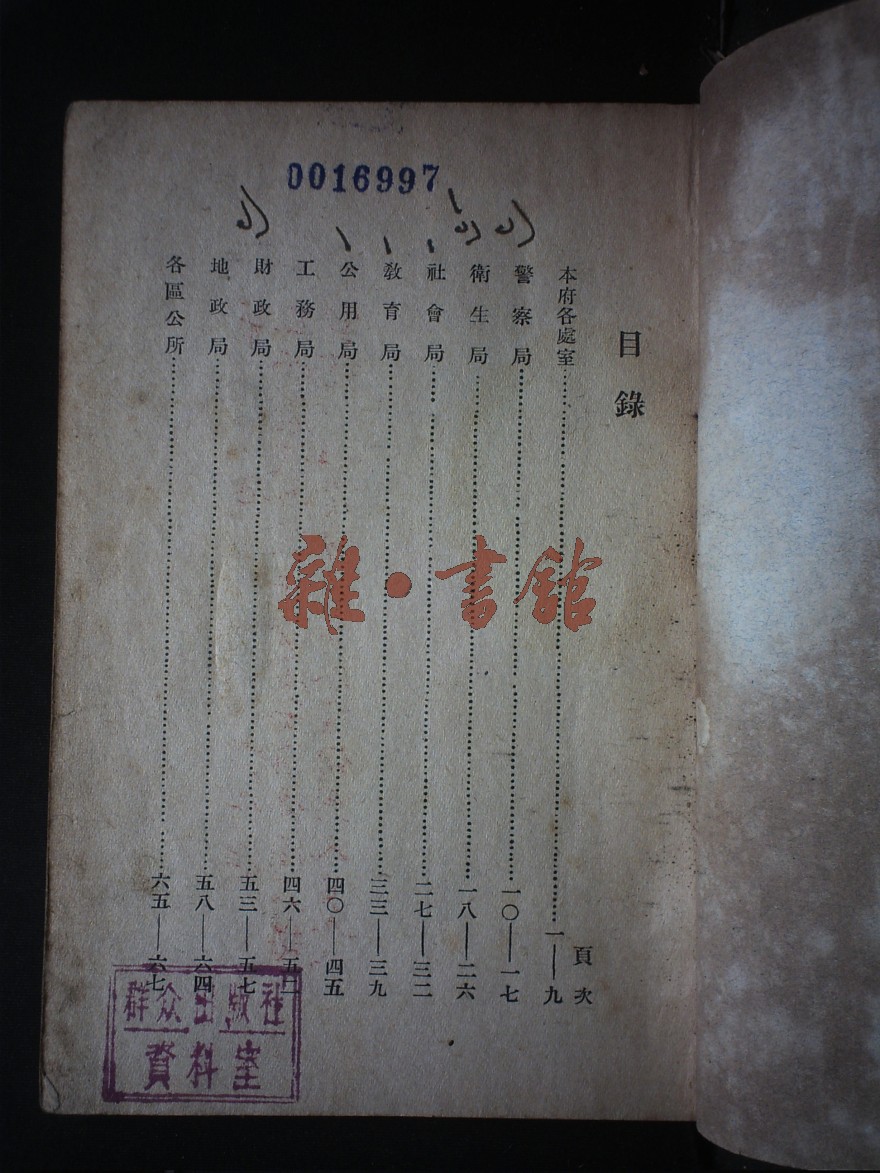 0016997
目錄
頁次
本府各處室…一——九
警察局…一〇——一七
衛生局…一八——二六
社會局…二七——三二
教育局…三三——三九
公用局…四〇——四五
工務局…四六——五二
財政局…五三——五七
地政局…五八——六四
各區公所…六五——六七
雜·書館
群众出版社
資料室